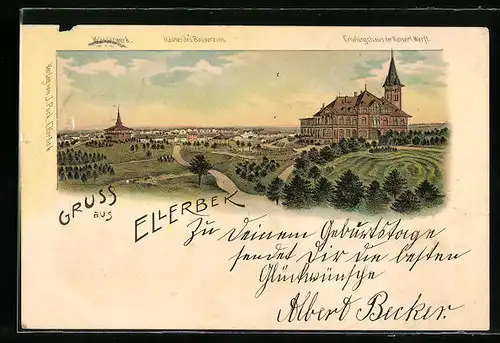 Häuser des Bauvereins.
Erholungshaus der Kaiserl. Werft.
GRUSS
aus
ELLERBEK
Zu Deinem Geburtstage
sendet Dir die besten
Glückwünsche
Albert Becker.